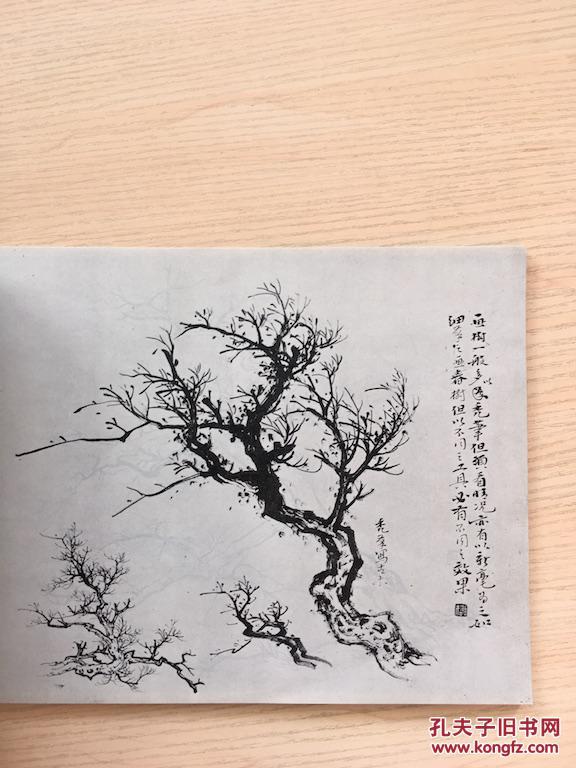 画树一般多以用秃笔但须看情况亦有以新毫为之如
细笔之画春树但以不同之工具必有不同之效果
秃笔写
孔夫子旧书网
www.kongfz.com